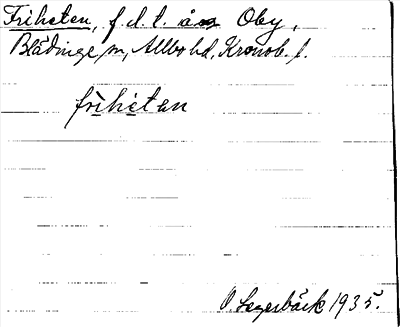 Friheten, f. d. t. å Oby,
Blädinge sn, Allbo hd, Kronob. l.
frìhètan
O. Segerbäck 1935.